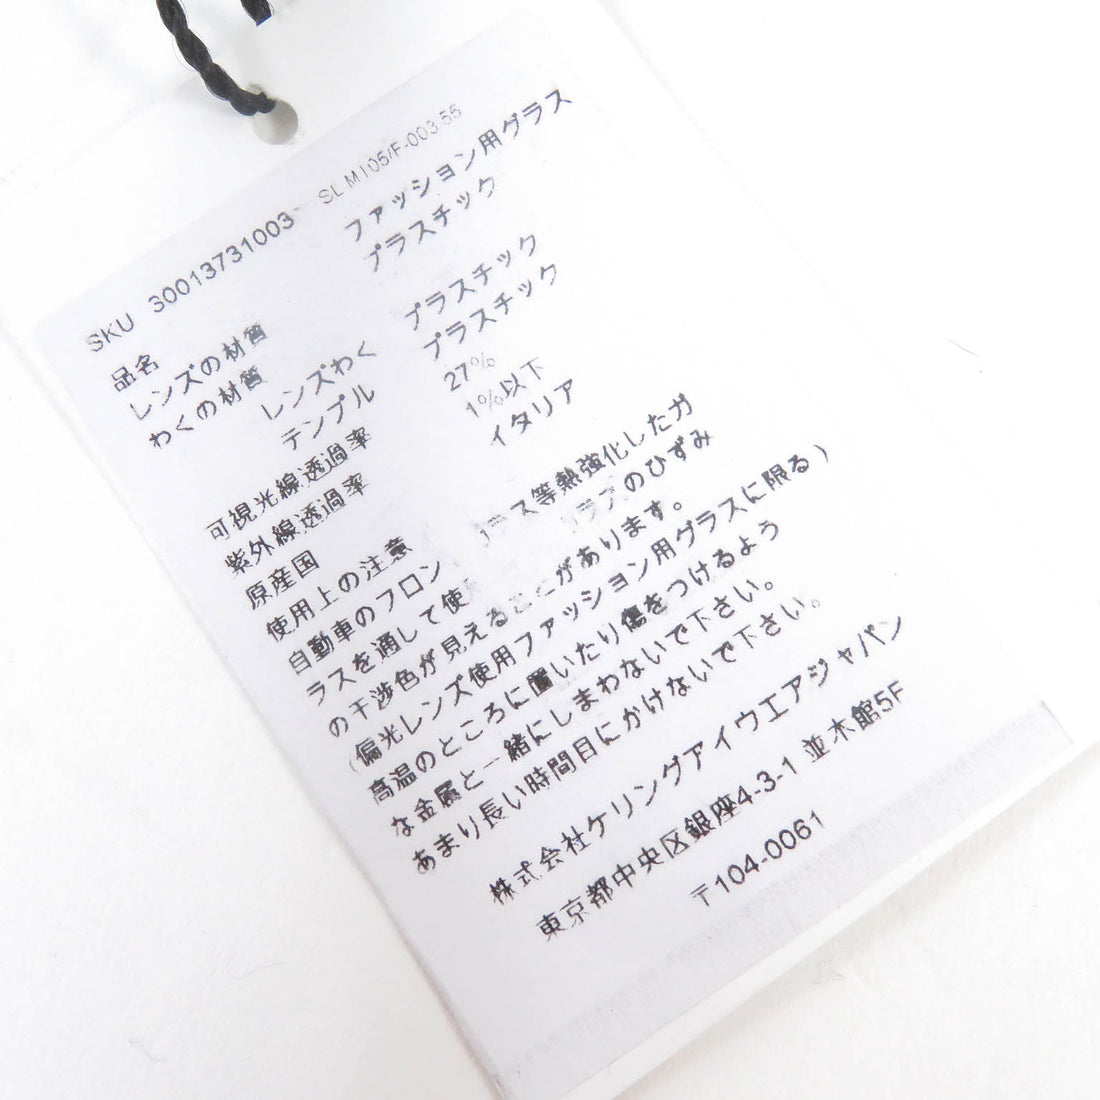 SKU 30013731003 SL M105/F-003 55
品名 ファッション用グラス
レンズの材質 プラスチック
わくの材質
レンズわく プラスチック
テンプル プラスチック
可視光線透過率 27%
紫外線透過率 1%以下
原産国 イタリア
使用上の注意
自動車のフロン ス等熱強化したガ
ラスを通して使 のひずみ
の干渉色が見える があります。
(偏光レンズ使用ファッション用グラスに限る)
高温のところに置いたり傷をつけるよう
な金属と一緒にしまわないで下さい。
あまり長い時間目にかけないで下さい。
株式会社ケリングアイウエアジャパン
東京都中央区銀座4-3-1 並木館5F
〒104-0061